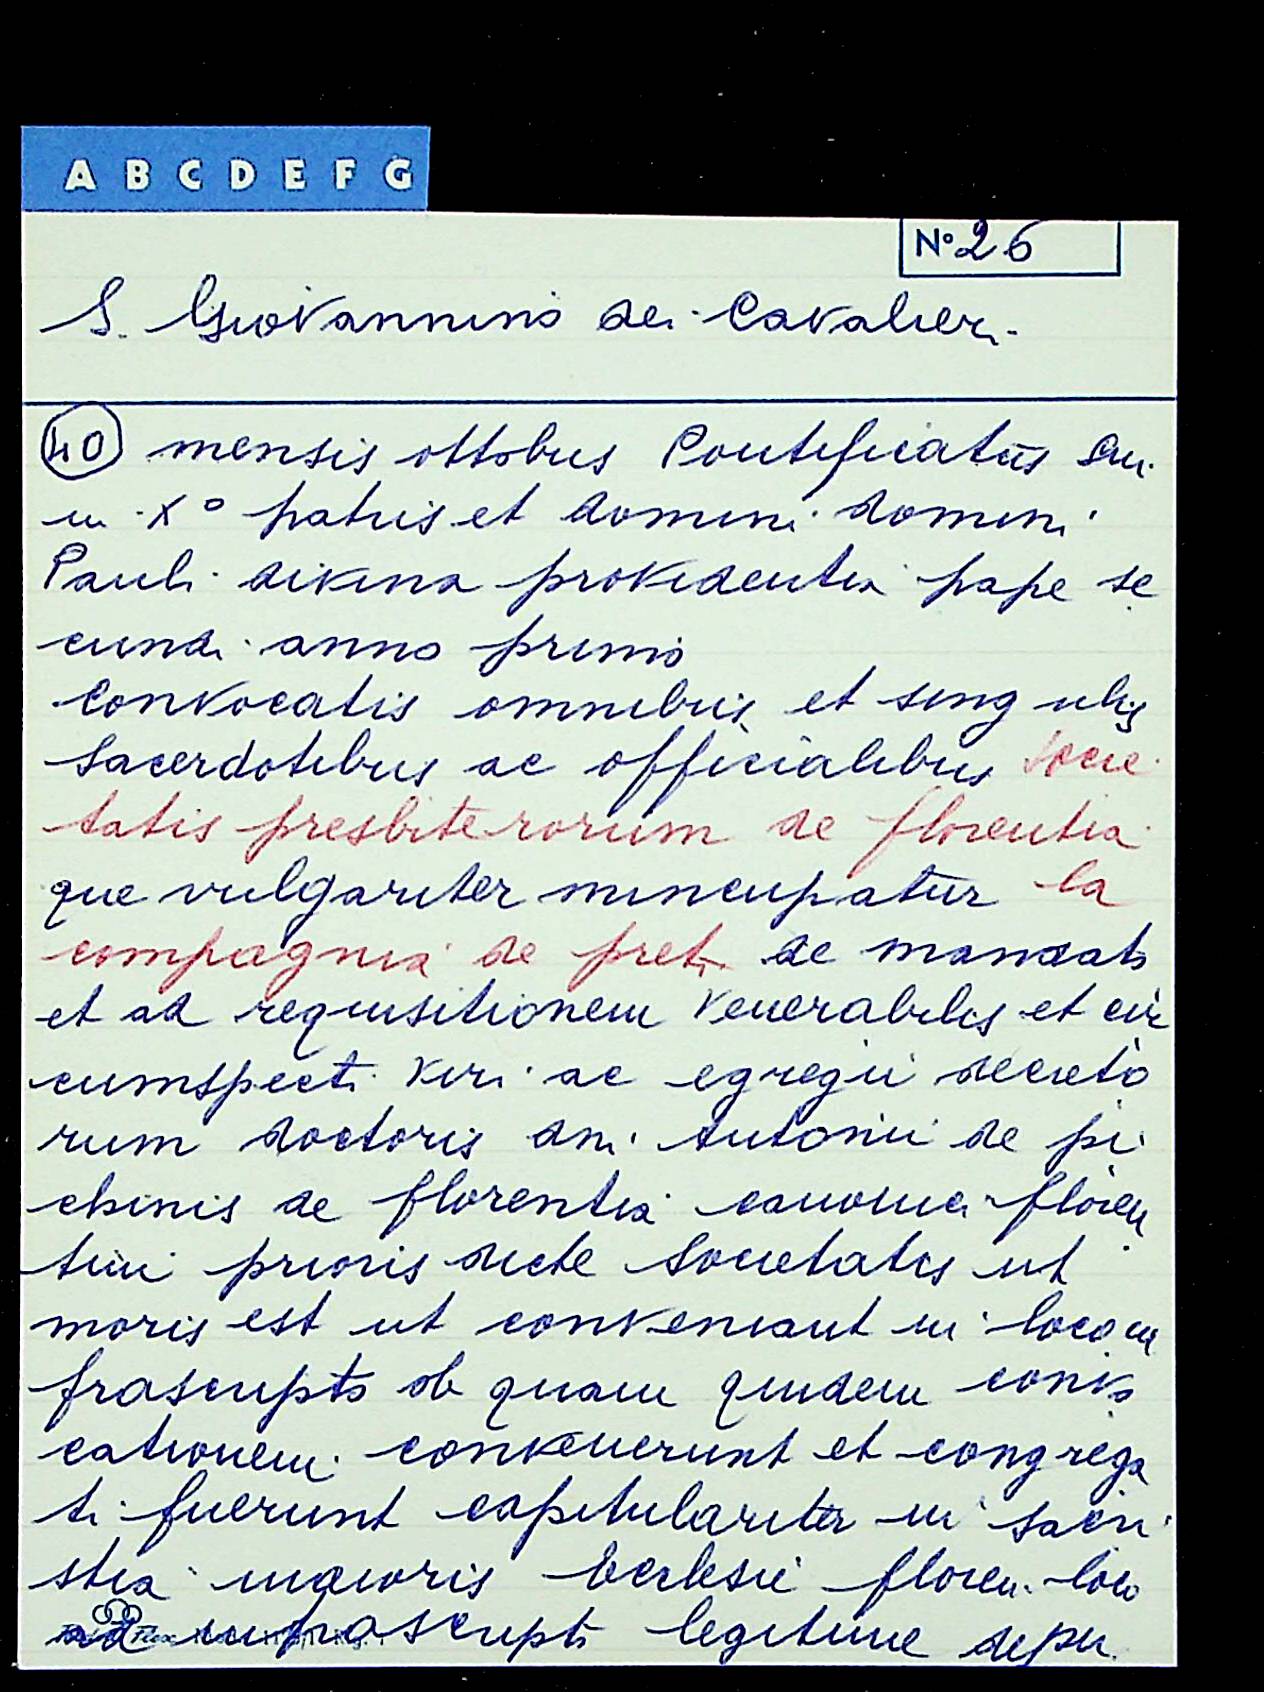 A B C D E F G
Nº 26
S. Giovannino dei Cavalieri
40 mensis ottobris Pontificatus Sui
in Xº patris et domini domini
Pauli divina providentia pape se
cundi anno primo
Convocatis omnibus et singulis
sacerdotibus ac officialibus socie
tatis presbiterorum de florentia
que vulgariter nuncupatur la
compagnia de preti de mandato
et ad requisitionem venerabilis et cir
cumspecti viri ac egregii decreto
rum doctoris dni Antonii de pi
chinis de florentia canonici floren
tini prioris dicte Societatis ut
moris est ut conveniant in loco in
frascripto ob quam quidem convo
cationem convenerunt et congrega
ti fuerunt capitulariter in sacri
stia maioris Ecclesie floren. loco
ad infrascripta legitime depu